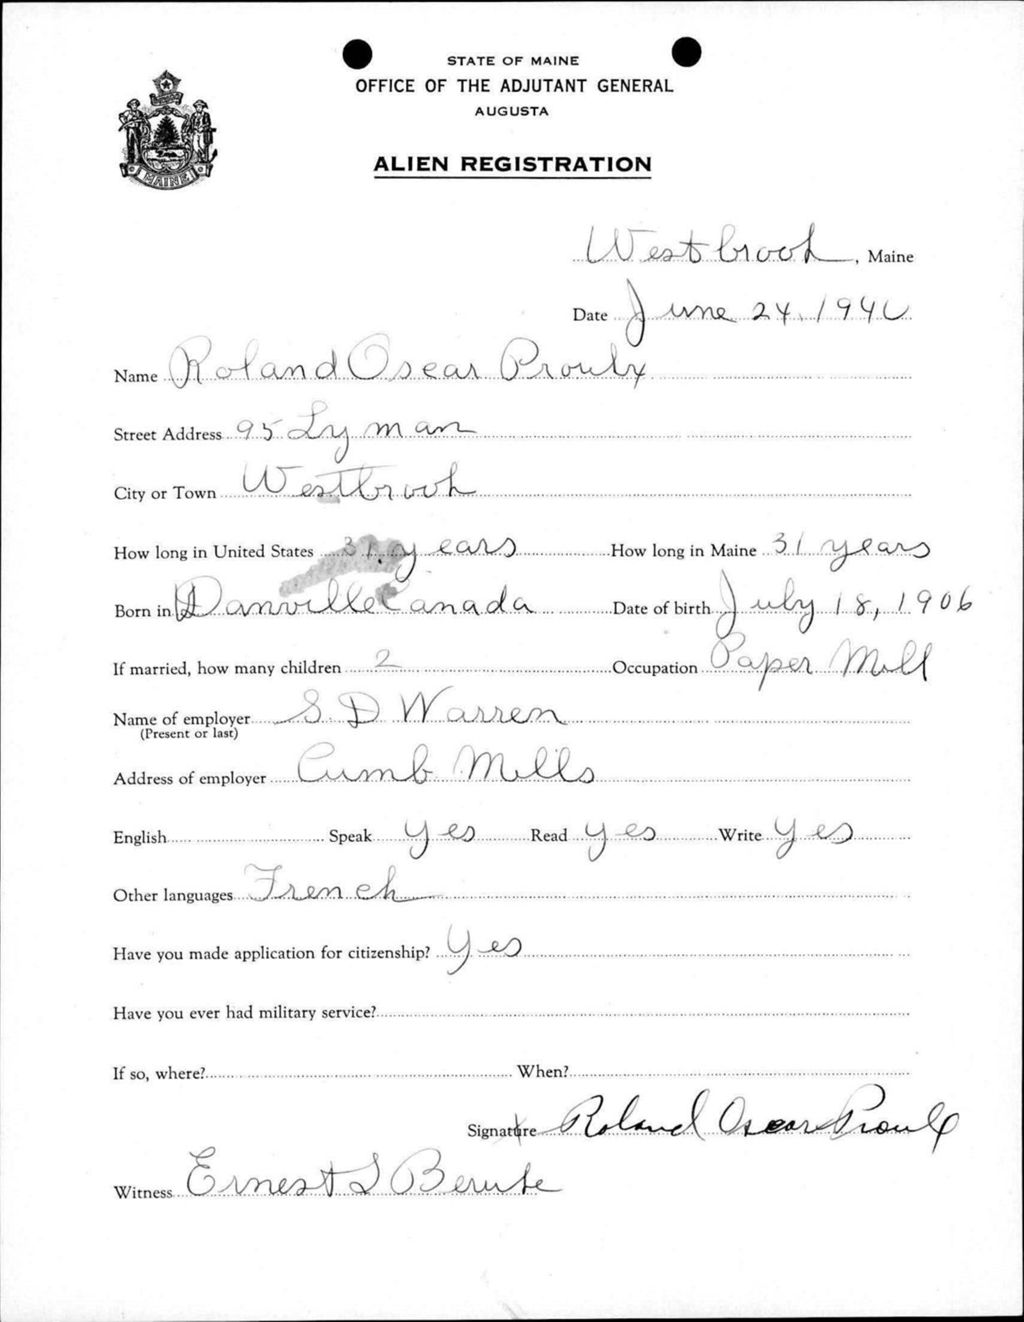 STATE OF MAINE
OFFICE OF THE ADJUTANT GENERAL
AUGUSTA
ALIEN REGISTRATION
MAINE
Westbrook, Maine
Date June 24, 1940
Name Roland Oscar Proulx
Street Address 95 Lyman
City or Town Westbrook
How long in United States 31 years How long in Maine 31 years
Born in Danville Canada Date of birth July 18, 1906
If married, how many children 2 Occupation Paper Mill
Name of employer S. D Warren
(Present or last)
Address of employer Cumb Mills
English Speak yes Read yes Write yes
Other languages French
Have you made application for citizenship? yes
Have you ever had military service?
If so, where? When?
Signature Roland Oscar Proulx
Witness Ernest L